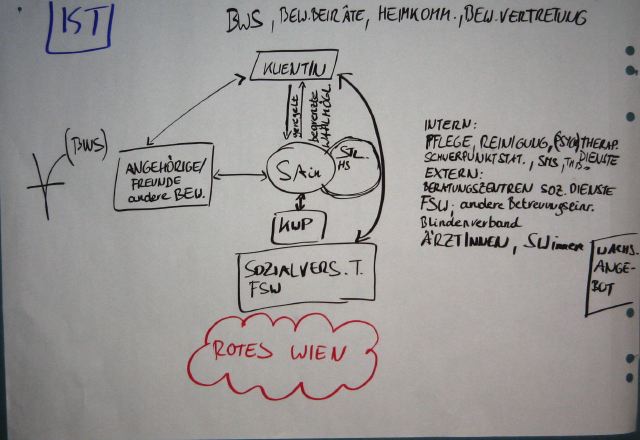 IST
BWS, BEW.BEIRÄTE, HEIMKOMM., BEW.VERTRETUNG
KLIENTIN
geregelt
begrenzte
WAHLMÖGL.
(BWS)
ANGEHÖRIGE/
FREUNDE
andere BEW.
SAin
STL.
HS
KUP
SOZIALVERS.T.
FSW
ROTES WIEN
INTERN:
PFLEGE, REINIGUNG, (PSYCH)THERAP.
SCHWERPUNKTSTAT., SMS, DIENSTE
EXTERN:
BERATUNGSZENTREN SOZ. DIENSTE
FSW, andere Betreuungseinr.
Blindenverband
ÄRZTINNEN, SWinnen
WACHS.
ANGE-
BOT